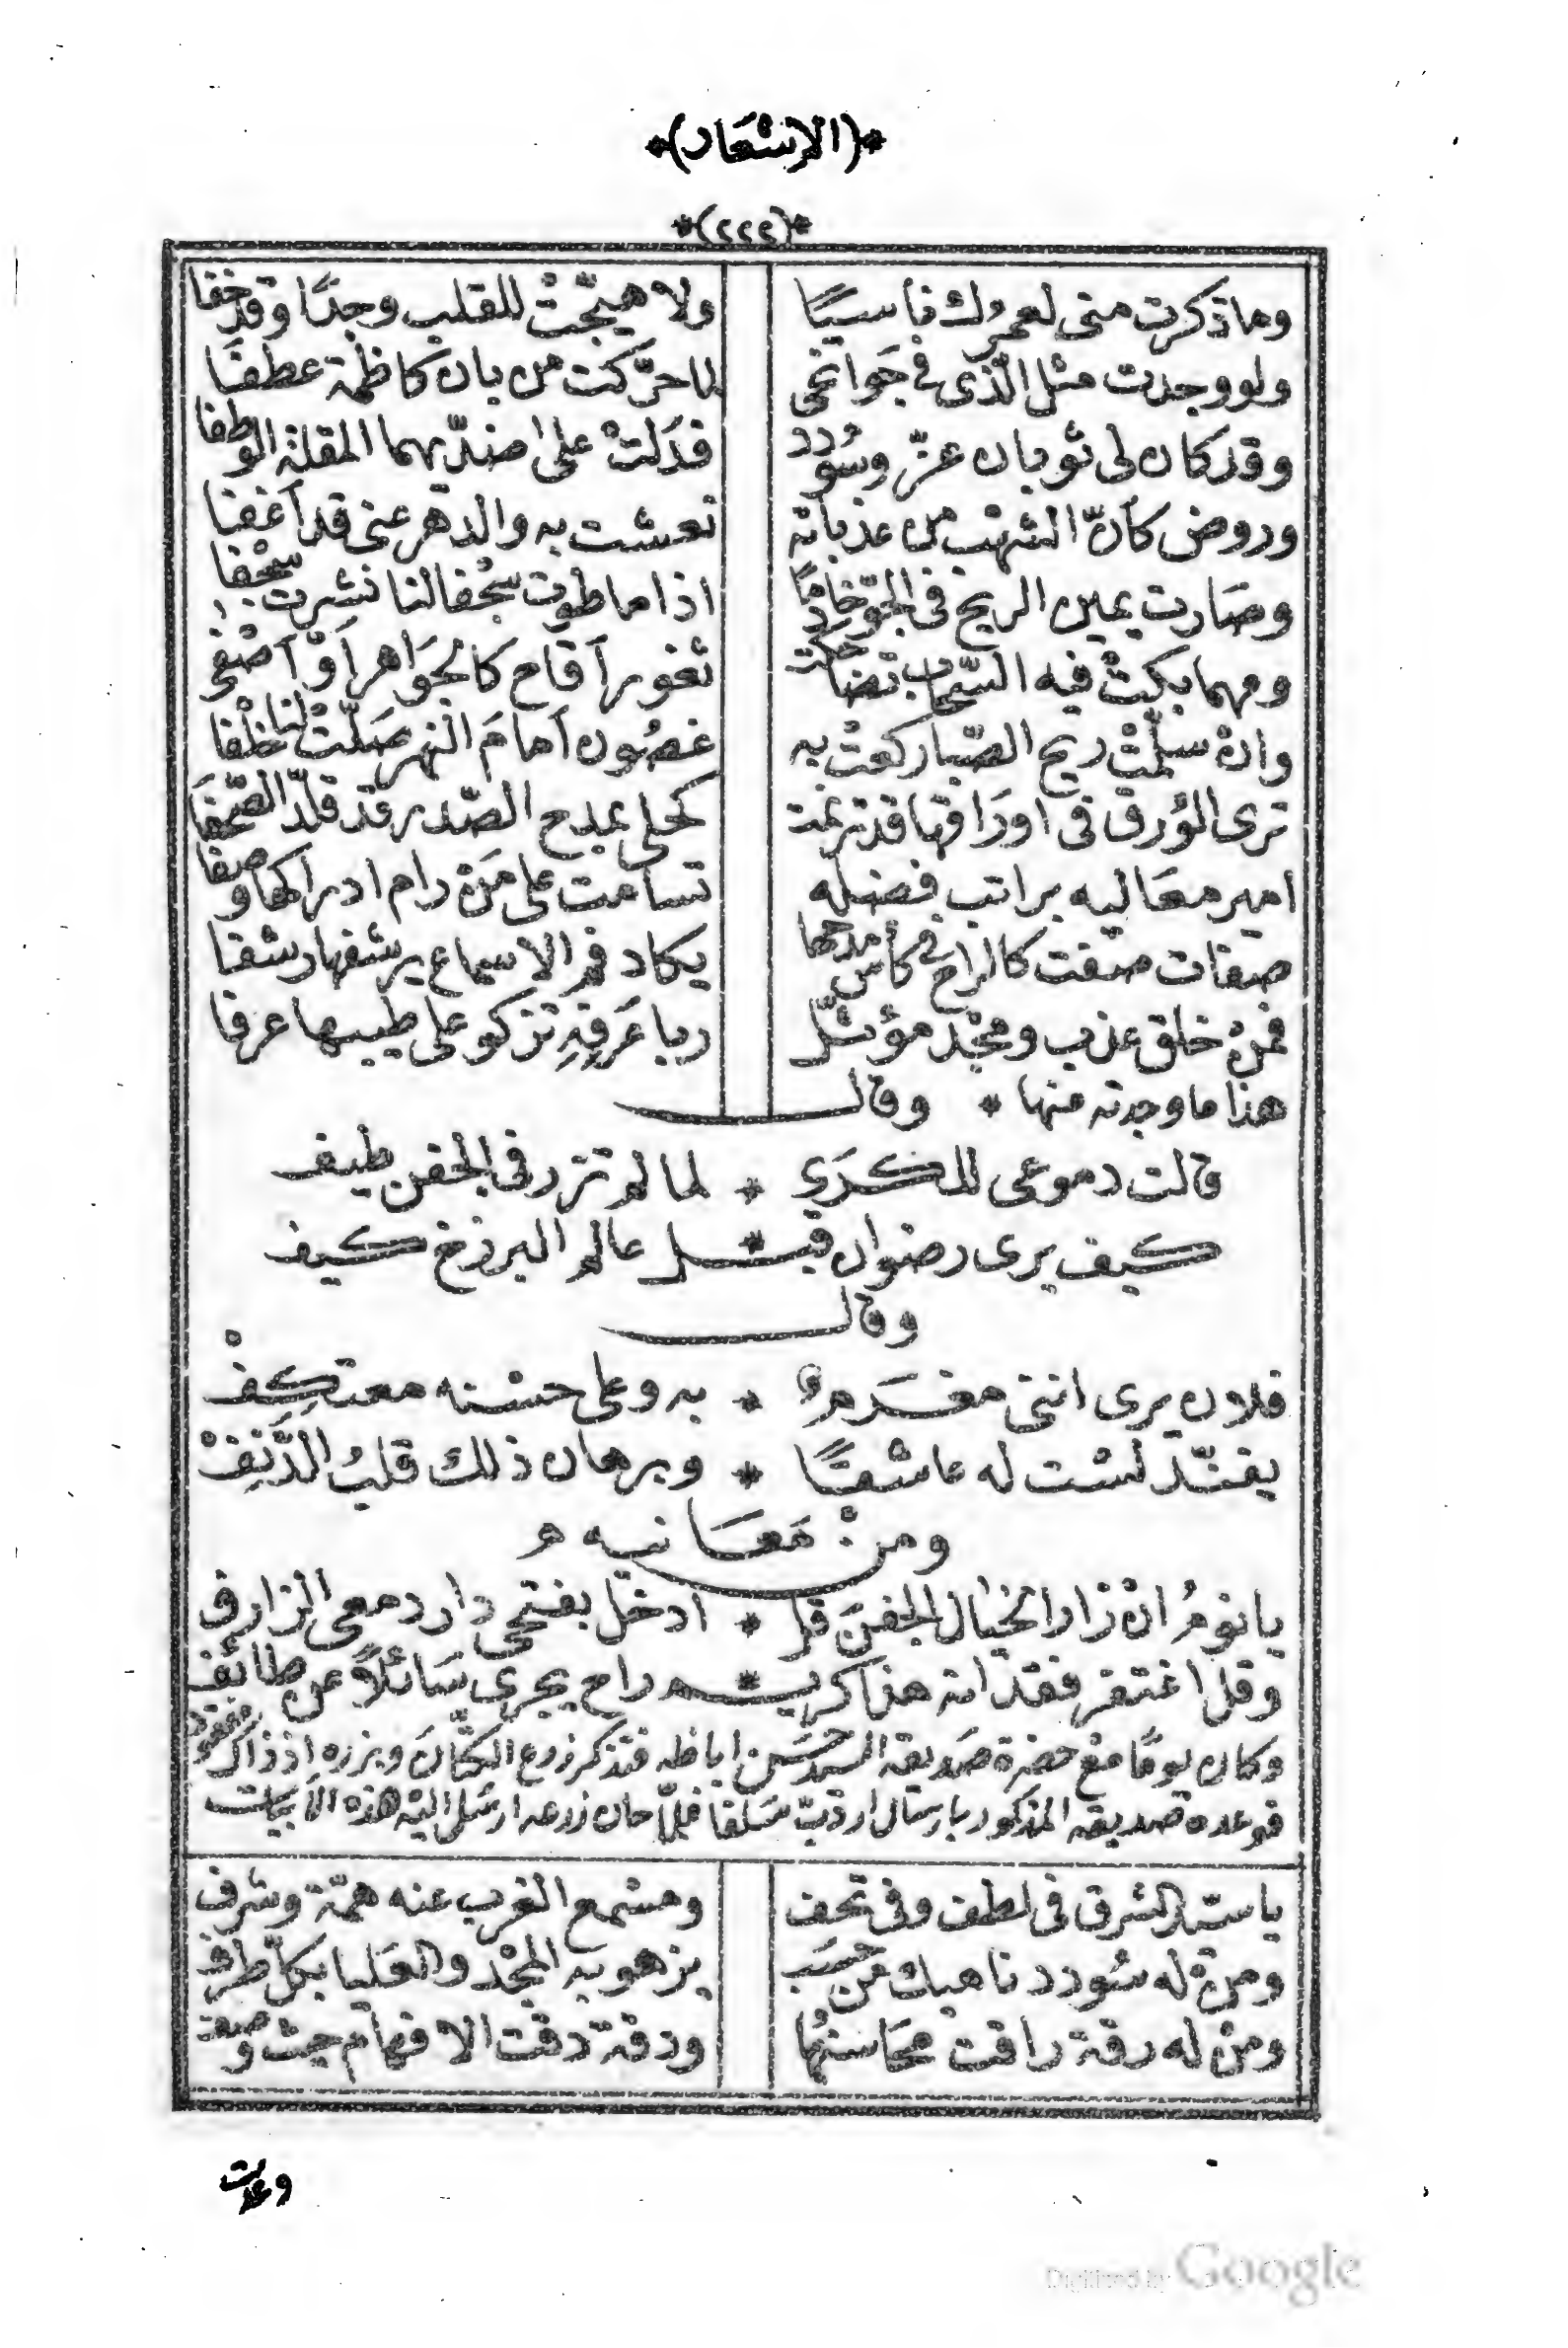 *(الاشعار)*
*(٢٢٤)*
وما ذكرت متى لعمرك ناسيًا ولا هيّجتْ للقلب وجدًا وقد خفا
ولو وجدت مثل الّذى فى جَوانحى لما حرّكت من بان كاظمة عطفَا
وقد كان لى ثوبان عزّ وسُودد فدَلتْ على ضدّيهما المقلة الوطفا
وروض كأنّ الشهْب من عذباته نعشت به والدّهر عنى قد اغفا
وصَارت يمين الريح فى الجوّ خادمًا اذا ما طوت سجْفا لنا نشرت سجْفا
ومهما بكتْ فيه السّحاب تضاحكت ثغور اَقاح كالجوَاهر اَوْ اَصْفى
وانْ سلّمتْ ريح الصّبا ركعتْ به غصُون اَمامَ النهر صَلّتْ لنا
ترى الوُرق فى اورَاقها قد ترنمت كحلى بمدح الصّدر قد قلّد الصّحفَا
امير معَاليه براتب فضله تسامت على مَنْ رام ادراكها وصفا
صفات صفت كالراح فى كأس مدحها يكاد فم الاسماع يرشفها رشفا
فمنْ خلق عذب ومجْد مؤثّل ربا عَرفهِ تزكو على طيبها عرفا
هذا ما وجدته منها * وقال
قالت دموعى للكرَي * لما لم تزر فى الجفن طيف
كيف يرى رضوان قبل * عالم البرزخ كيف
وقال
فلان يرى اننى مغرَم * به وعلى حسْنه معتكِفْ
يفنّد لسْت له عاشقًا * وبرهان ذلك قلبُ الدَّنِفْ
ومنْ مَعَانيه
يا نومُ انْ زار الخيال الجفنَ قل * ادخل بفتحى دار دمعى الزارف
وقل اغتفر فقد انه هذا كريم * راح يجرى سَائلاً عن طائف
وكان يومًا مع حضرة صَديقه السيد حسَن اباظه فتذكر زرع الكتّانَ وبزره اِذ ذاك مفقود
فوعده صديقه المذكور بارسال اردبّ سَلفا فلمّا حان زرعه ارسَل اليْه هذه الاَبيات
يا سيّد الشرق فى لطف وفى تحف ومسْمع الغرب عنه همّة وشرف
ومنْ له سُودد ناهيك من حسَب يزهو به المجْد والعَليا بكلّ طرف
ومنْ له رقة راقت محَاسنهُا ودقة دقت الافهام حيث وصف
وعدت
Digitized by Google